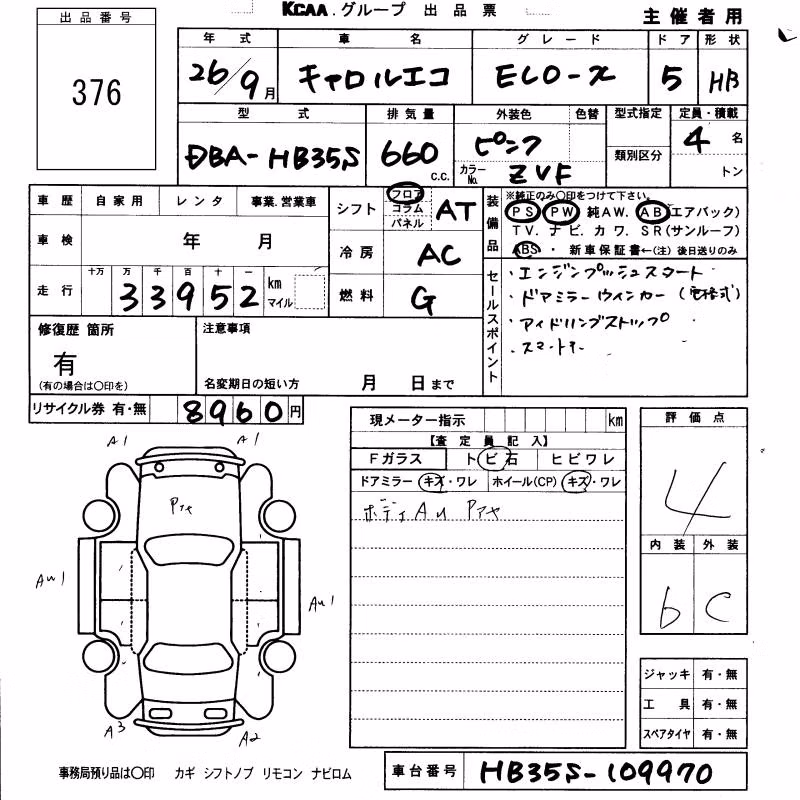 KCAA.グループ 出品票
主催者用
出品番号
376
年式 車名 グレード ドア 形状
26/9月 キャロルエコ ECO-X 5 HB
型式 排気量 外装色 色替 型式指定 定員・積載
類別区分
DBA-HB35S 660 c.c. ピンク 4名
カラーNo. ZVF トン
車歴 自家用 レンタ 事業.営業車
シフト フロア コラム パネル AT
装備品
※純正のみ〇印をつけて下さい。
PS PW 純AW. AB エアバック)
TV. ナビ. カワ. SR(サンルーフ)
ABS ・ 新車保証書←(注)後日送りのみ
車検 年 月
冷房 AC
走行 十万 万 千 百 十 一
33952 km マイル
燃料 G
セールスポイント
・エンジンプッシュスタート
・ドアミラーウインカー(電格式)
・アイドリングストップ
・スマートキー
修復歴 箇所
有
(有の場合は〇印を)
注意事項
名変期日の短い方 月 日まで
リサイクル券 有・無 8960円
現メーター指示 km
【査定員記入】
Fガラス トビ石 ヒビワレ
ドアミラー キズ・ワレ ホイール(CP) キズ・ワレ
ボディAu Pアセ
評価点
4
内装 外装
b C
A1 A1
Pアセ
Au1 Au1
A3 A2
ジャッキ 有・無
工具 有・無
スペアタイヤ 有・無
事務局預り品は〇印 カギ シフトノブ リモコン ナビロム
車台番号 HB35S-109970